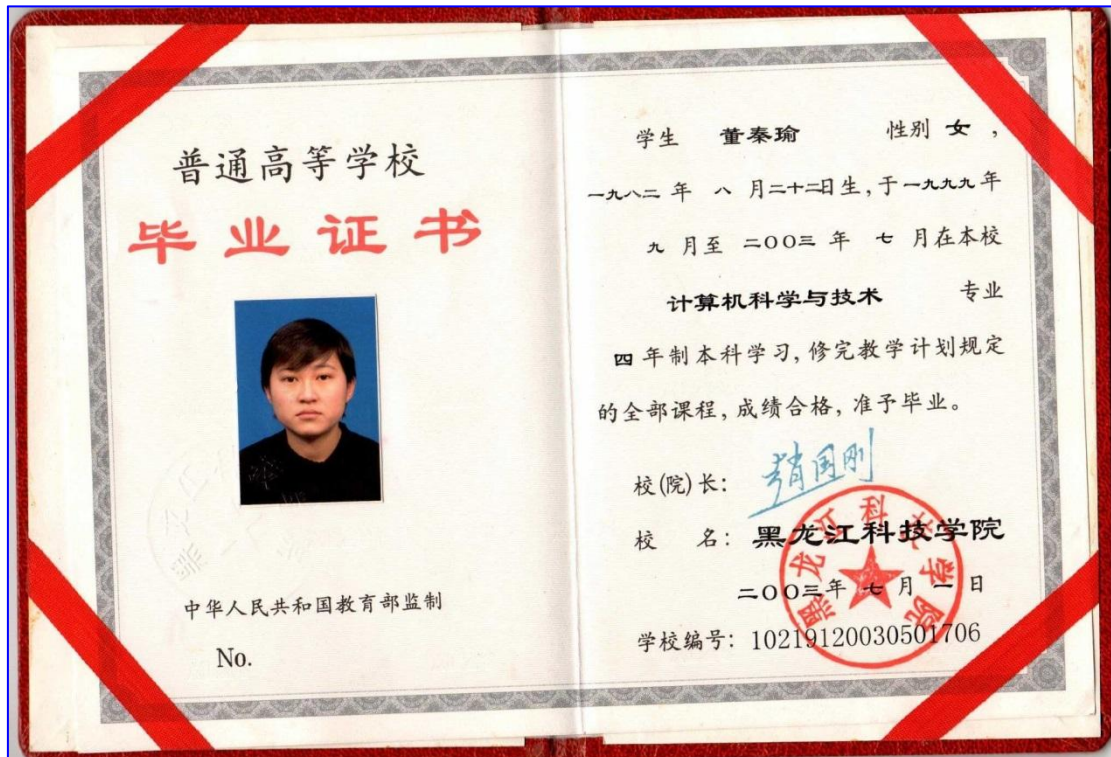 普通高等学校
毕业证书
中华人民共和国教育部监制
No.
学生 董秦瑜 性别 女，
一九八二 年 八 月二十二日生，于一九九九年
九 月至 二〇〇三 年 七 月在本校
计算机科学与技术 专业
四 年制本科学习，修完教学计划规定
的全部课程，成绩合格，准予毕业。
校(院)长： 赵国刚
校 名： 黑龙江科技学院
二〇〇三年 七 月 一 日
学校编号： 10219120030501706
黑龙江科技学院